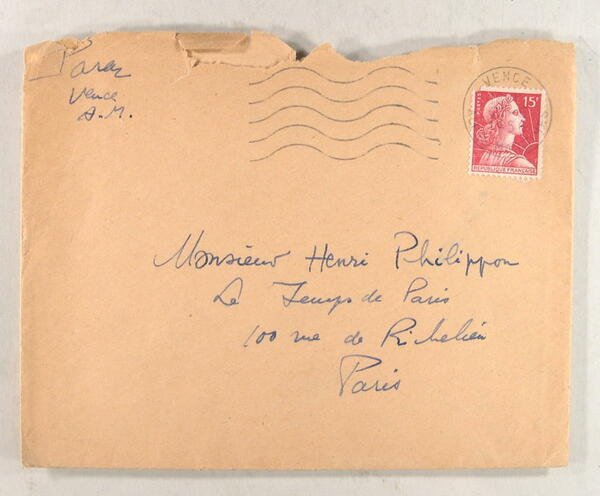 Paraz
Vence
A.M.
VENCE
POSTES
15F
REPUBLIQUE FRANÇAISE
Monsieur Henri Philippon
Le Temps de Paris
100 rue de Richelieu
Paris